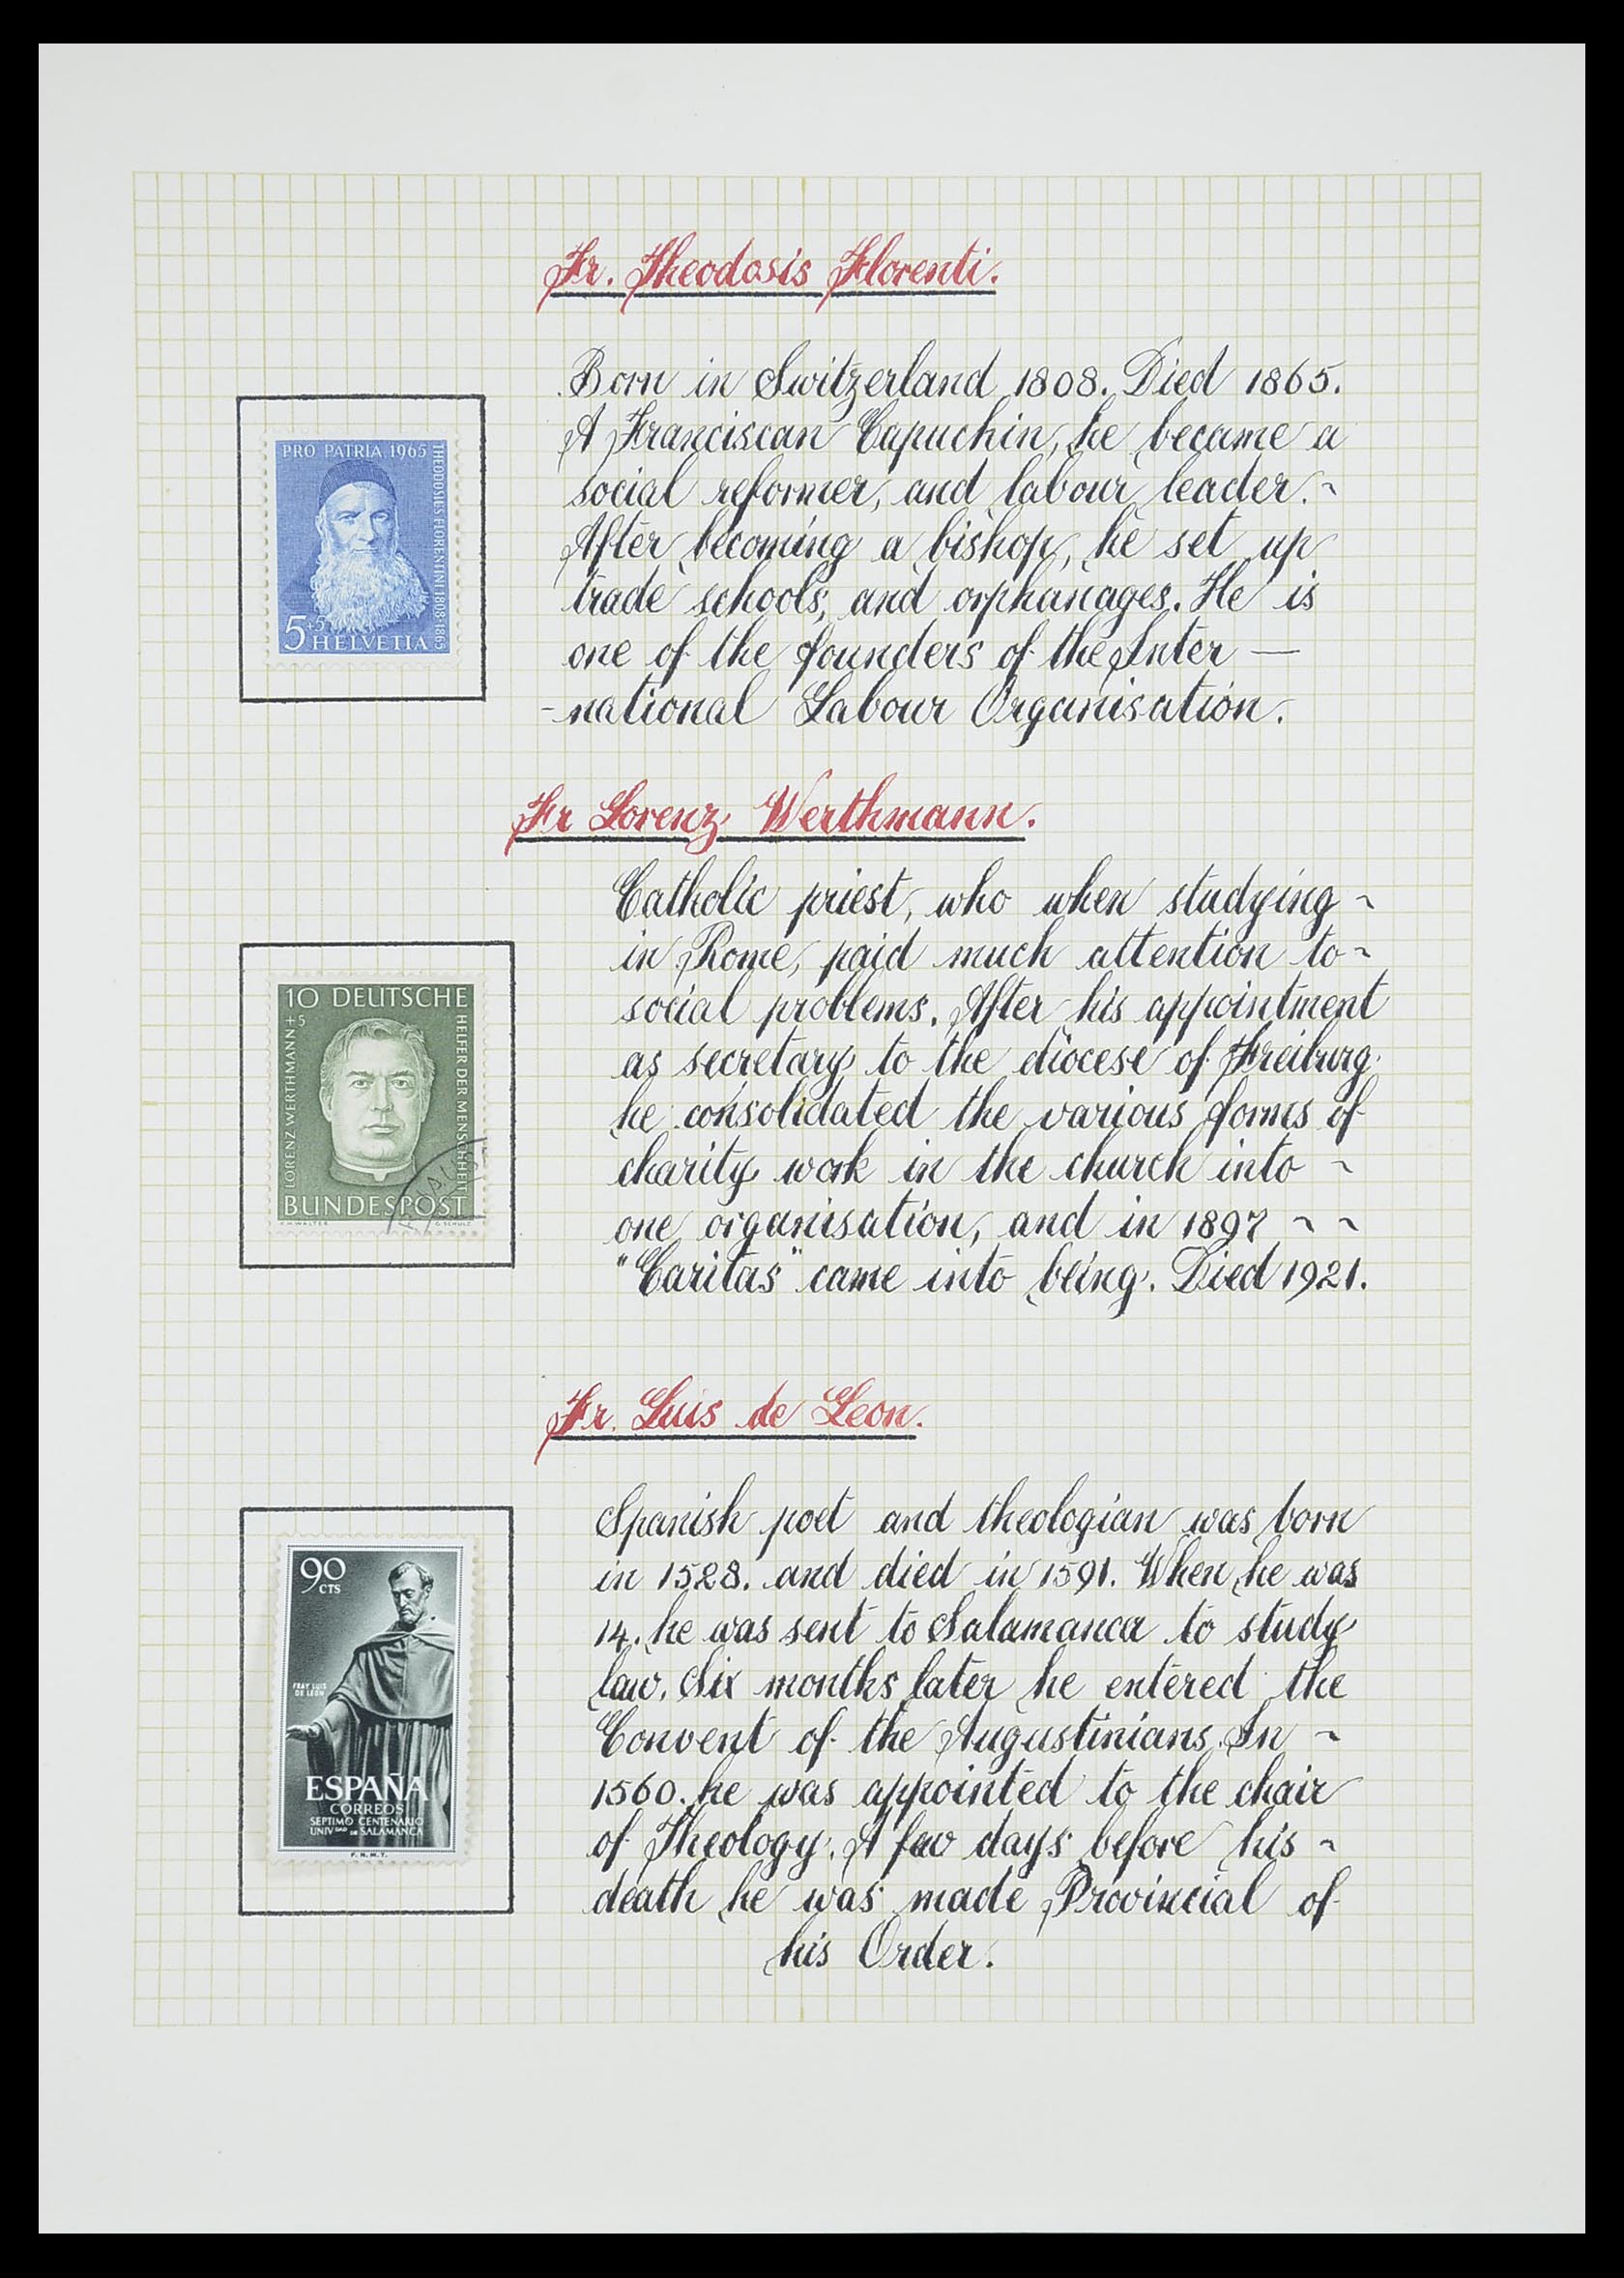 Fr. Theodosis Florenti.
Born in Switzerland 1808. Died 1865.
A Franciscan Capuchin, he became a
social reformer, and labour leader. ~
After becoming a bishop, he set up
trade schools, and orphanages. He is
one of the founders of the Inter —
-national Labour Organisation.
PRO PATRIA 1965
THEODOSIUS FLORENTINI 1808-1865
5+5
HELVETIA
Fr Lorenz Werthmann.
Catholic priest, who when studying ~
in Rome, paid much attention to ~
social problems. After his appointment
as secretary to the diocese of Freiburg
he consolidated the various forms of
charity work in the church into ~
one organisation, and in 1897 ~ ~
"Caritas" came into being. Died 1921.
10 DEUTSCHE
+5
LORENZ WERTHMANN
HELFER DER MENSCHHEIT
BUNDESPOST
H+M WALTER
G. SCHULZ
Fr. Luis de Leon.
Spanish poet and theologian was born
in 1528. and died in 1591. When he was
14. he was sent to Salamanca to study
law. Six months later he entered the
Convent of the Augustinians. In ~
1560. he was appointed to the chair
of Theology. A few days before his ~
death he was made Provincial of
his Order.
90
CTS
FRAY LUIS
DE LEON
ESPAÑA
CORREOS
SEPTIMO CENTENARIO
UNIVDAD DE SALAMANCA
F.N.M.T.